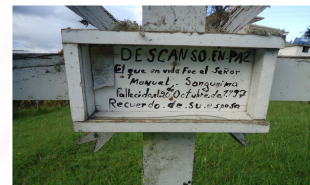 DESCANSO.EN.PAZ
El que en vida Fue el señor
Manuel. Sanqueima
Fallecido el 20 Octubre.de 1997
Recuerdo.de.su.esposa